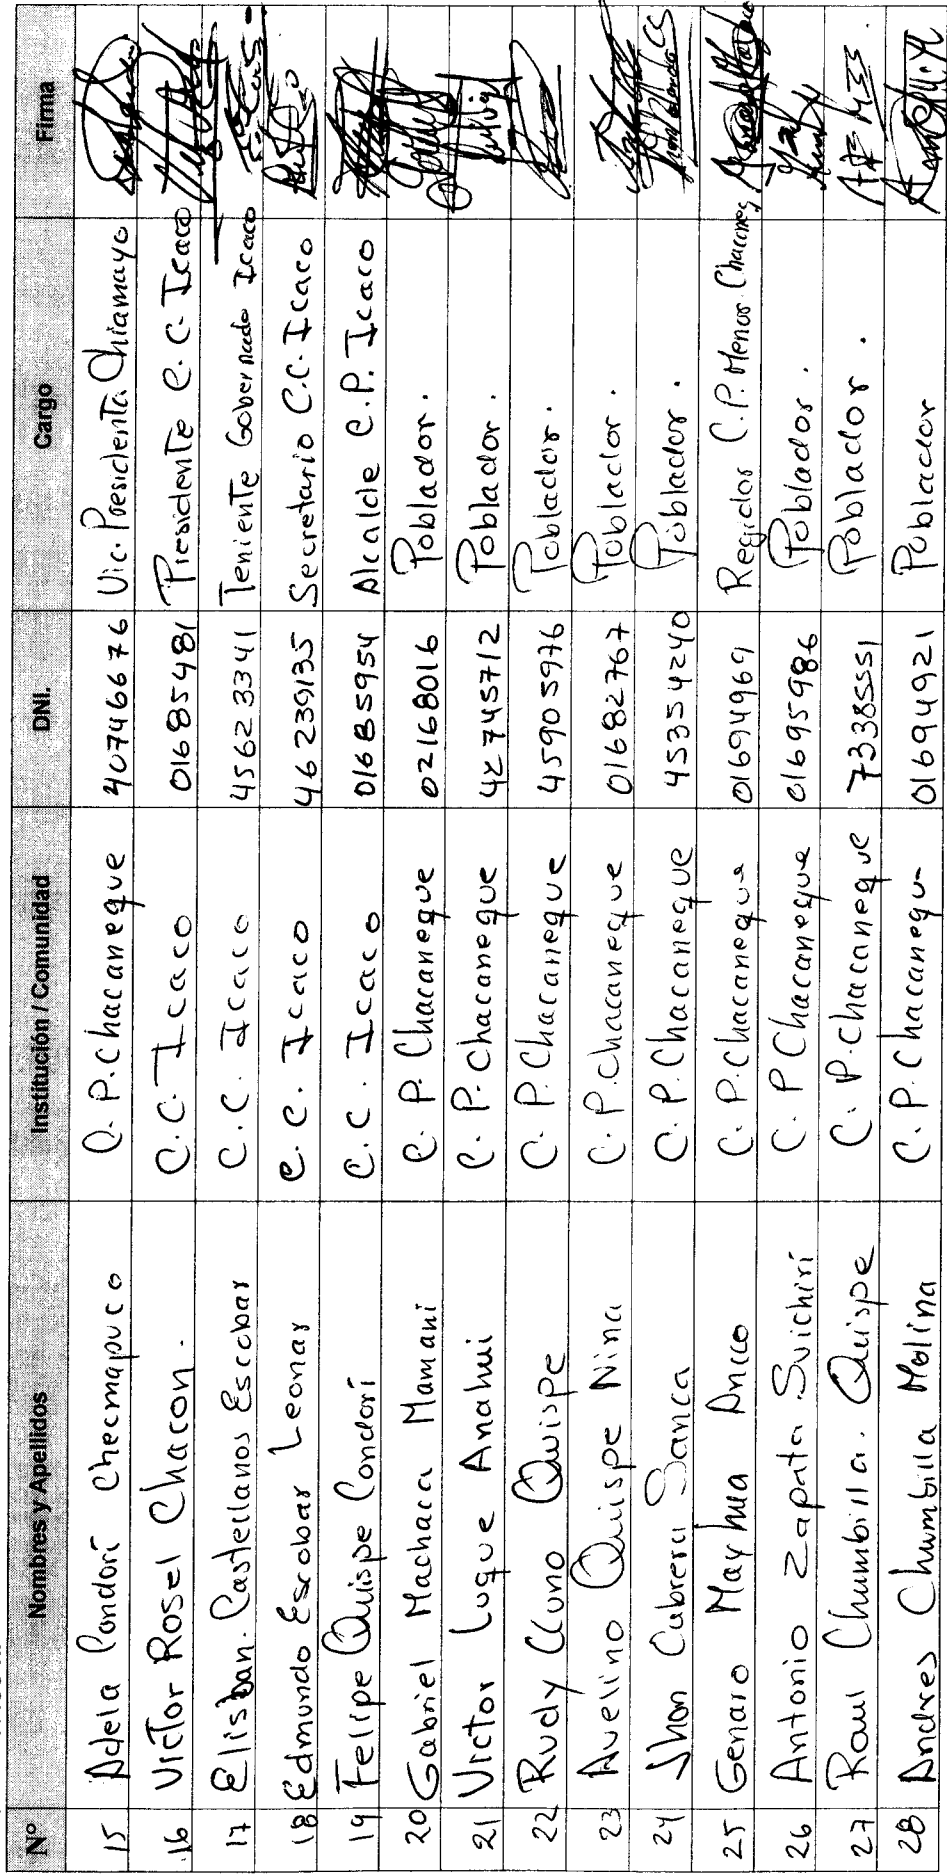 Nº Nombres y Apellidos Institución / Comunidad DNI. Cargo Firma
15 Adela Condori Checmapuco C.P. Chacaneque 40746676 Vic. Presidenta Chiamayo
16 Victor Rosel Chacon. C.C. Icaco 01685481 Presidente C.C. Icaco
17 Elisban. Castellanos Escobar C.C. Icaco 45623341 Teniente Gobernado Icaco
18 Edmundo Escobar Leonar C.C. Icaco 46239135 Secretario C.C. Icaco
19 Felipe Quispe Condori C.C. Icaco 01685954 Alcalde C.P. Icaco
20 Gabriel Machaca Mamani C.P. Chacaneque 02168016 Poblador.
21 Victor Luque Anahui C.P. Chacaneque 42745712 Poblador.
22 Rudy Ccuno Quispe C.P. Chacaneque 45905976 Poblador.
23 Avelino Quispe Nina C.P. Chacaneque 01682767 Poblador.
24 Jhon Cabrera Sanca C.P. Chacaneque 45354240 Poblador.
25 Genaro Mayhua Anco C.P. Chacaneque 01694969 Regidor C.P. Menor Chacaneq
26 Antonio Zapata Suichiri C.P Chacaneque 01695986 Poblador.
27 Raul Chumbilla. Quispe C.P. Chacaneque 73385551 Poblador.
28 Andres Chumbilla Molina C.P. Chacaneque 01694921 Poblador